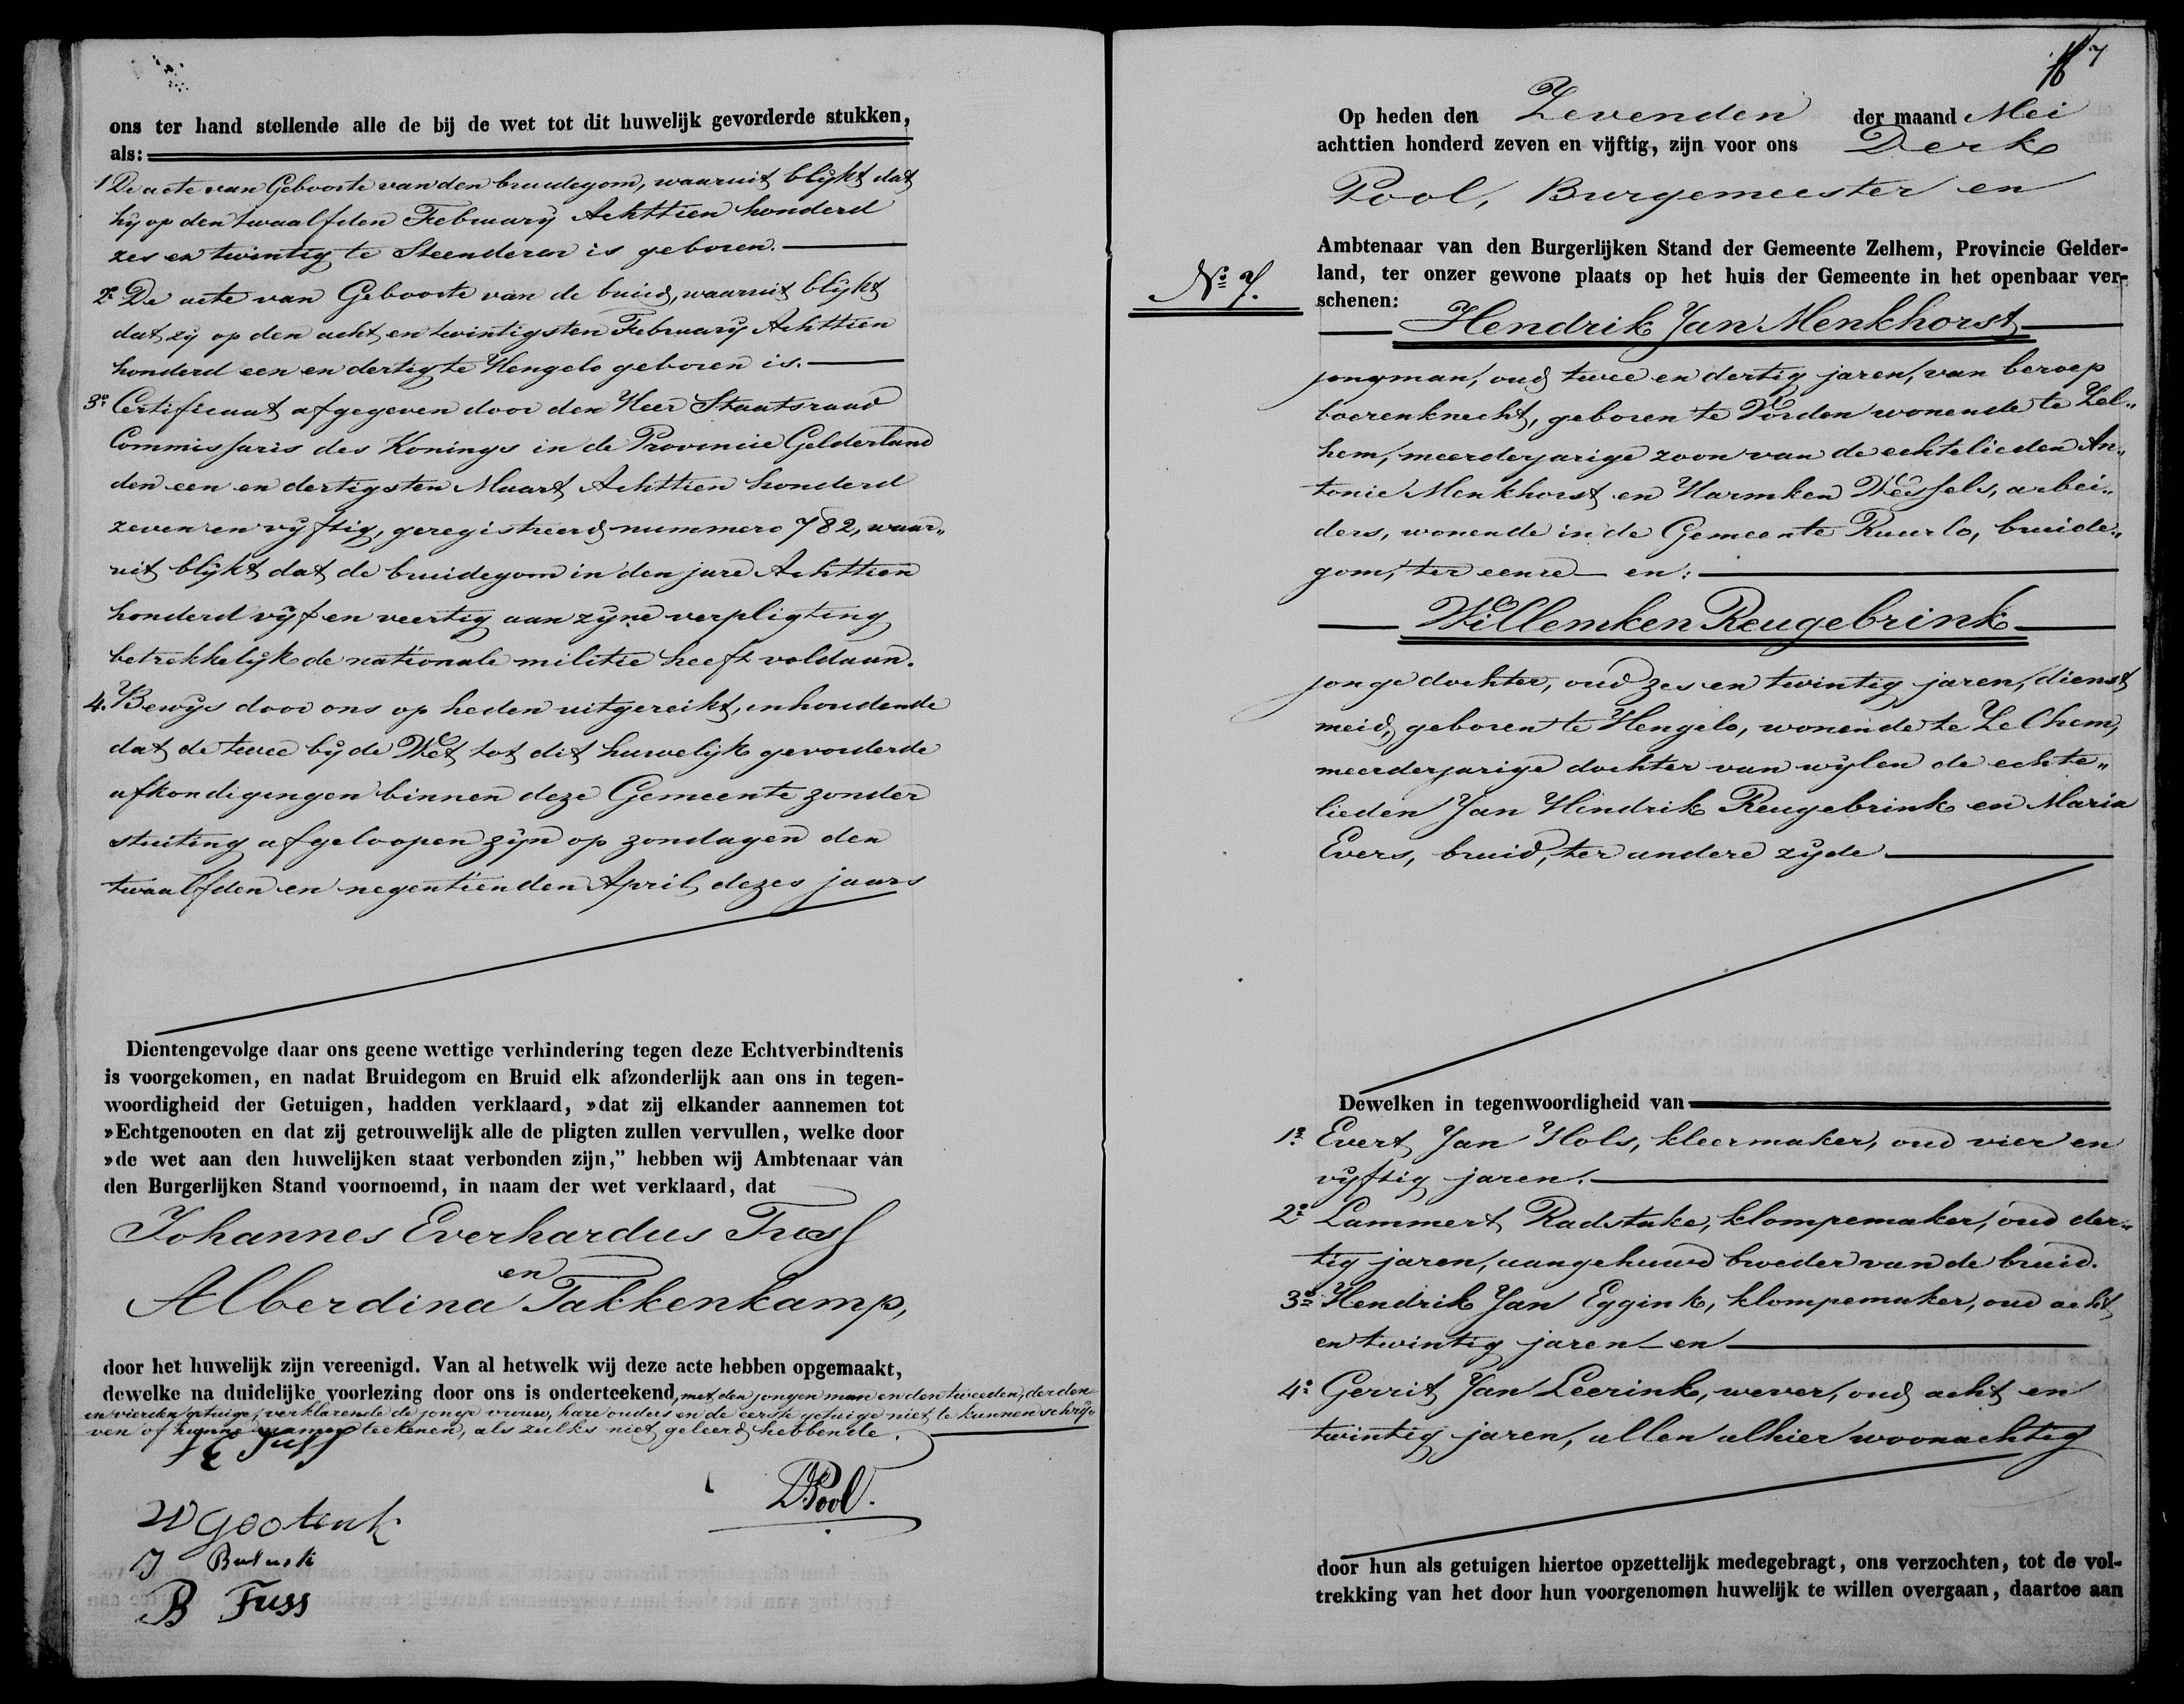 ons ter hand stellende alle de bij de wet tot dit huwelijk gevorderde stukken,
als:
1 De acte van Geboorte van den bruidegom, waaruit blijkt dat
hij op den twaalfden February Achttien honderd
zes en twintig te Steenderen is geboren.
2e De acte van Geboorte van de bruid, waaruit blijkt
dat zij op den acht en twintigsten February Achttien
honderd een en dertig te Hengelo geboren is.
3o Certificaat afgegeven door den Heer Staatsraad
Commissaris des Konings in de Provincie Gelderland
den een en dertigsten Maart Achttien honderd
zeven en vijftig, geregistreerd nummero 782, waar„
uit blijkt dat de bruidegom in den jare Achttien
honderd vijf en veertig aan zijne verpligting
betrekkelijk de nationale militie heeft voldaan.
4. Bewijs door ons op heden uitgereikt, inhoudende
dat de twee bij de Wet tot dit huwelijk gevorderde
afkondigingen binnen deze Gemeente zonder
stuiting afgeloopen zijn op zondagen den
twaalfden en negentienden April dezes jaars
Dientengevolge daar ons geene wettige verhindering tegen deze Echtverbindtenis
is voorgekomen, en nadat Bruidegom en Bruid elk afzonderlijk aan ons in tegen-
woordigheid der Getuigen, hadden verklaard, »dat zij elkander aannemen tot
»Echtgenooten en dat zij getrouwelijk alle de pligten zullen vervullen, welke door
»de wet aan den huwelijken staat verbonden zijn,” hebben wij Ambtenaar van
den Burgerlijken Stand voornoemd, in naam der wet verklaard, dat
Johannes Everhardus Fuss
en
Alberdina Takkenkamp,
door het huwelijk zijn vereenigd. Van al hetwelk wij deze acte hebben opgemaakt,
dewelke na duidelijke voorlezing door ons is onderteekend, met den jongen man en den tweeden, derden
en vierden getuige, verklarende de jonge vrouw, hare ouders en de eerste getuige niet te kunnen schrij„
ven of hunne namen teekenen, als zulks niet geleerd hebbende.
E Fuss
DPool.
W Gootink
J
B Fuss
7
Op heden den Zevenden der maand Mei
achttien honderd zeven en vijftig, zijn voor ons Derk
Pool, Burgemeester en
Ambtenaar van den Burgerlijken Stand der Gemeente Zelhem, Provincie Gelder-
land, ter onzer gewone plaats op het huis der Gemeente in het openbaar ver-
No 7.
schenen:
Hendrik Jan Menkhorst
jongman, oud twee en dertig jaren, van beroep
boerenknecht, geboren te Vorden wonende te Zel„
hem, meerderjarige zoon van de echtelieden An„
tonie Menkhorst en Harmken Wessels, arbei„
ders, wonende in de Gemeente Ruurlo, bruide„
gom, ter eenre en:
Willemken Reugebrink
jonge dochter, oud zes en twintig jaren, dienst
meid, geboren te Hengelo, wonende te Zelhem,
meerderjarige dochter van wijlen de echte„
lieden Jan Hendrik Reugebrink en Maria
Evers, bruid, ter andere zijde
Dewelken in tegenwoordigheid van
1o Evert Jan Hols, kleermaker, oud vier en
vijftig jaren.
2o Lammert Radstake, klompemaker, oud der„
tig jaren, aangehuwd broeder van de bruid.
3o Hendrik Jan Eggink, klompemaker, oud acht
en twintig jaren en
4o Gerrit Jan Leerink, wever, oud acht en
twintig jaren, allen alhier woonachtig
door hun als getuigen hiertoe opzettelijk medegebragt, ons verzochten, tot de vol-
trekking van het door hun voorgenomen huwelijk te willen overgaan, daartoe aan